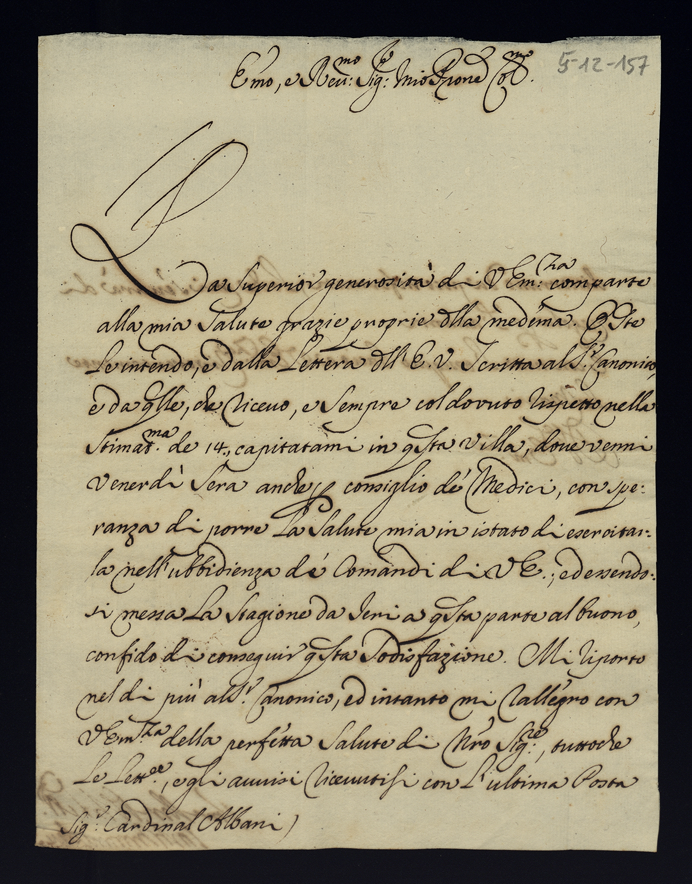 5-12-157
Emo, e Reu:mo Sig:re Mio Prone Col:mo
La Superior generosità di VEm:za comparte
alla mia Salute grazie proprie dlla medema. Qste
Le intendo, e dalla Lettera dll'E.V. Scritta al S:r Canonico,
e da qlle, che riceuo, e sempre col douuto rispetto nella
Stimat:ma de 14., capitatami in qsta Villa, doue venni
Venerdì Sera anche p consiglio de' Medici, con spe:
ranza di porre La Salute mia in istato di esercitar:
la nell'ubbidienza de' Comandi di VE.; ed essendo:
si messa La Stagione da Ieri a qsta parte al buono,
confido di conseguir qsta Sodisfazione. Mi riporto
nel di più al S:r Canonico, ed intanto mi rallegro con
VEm:za della perfetta Salute di Nro Sig:re, tuttoche
Le Lett:re, e gli auuisi riceuutisi con L'ultima Posta
Sig:r Cardinal Albani)